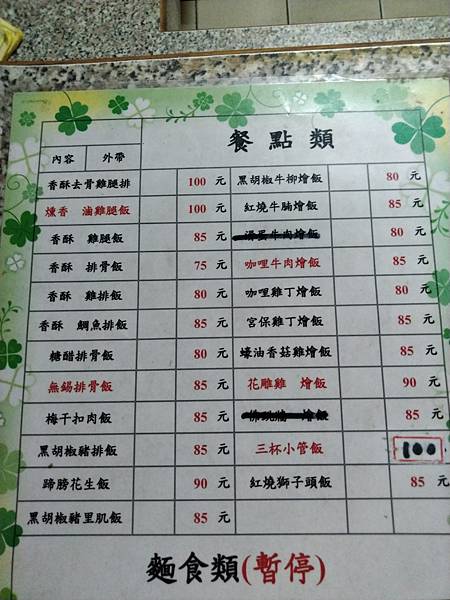 餐點類
內容 外帶
香酥去骨雞腿排 100 元 黑胡椒牛柳燴飯 80 元
燻香 滷雞腿飯 100 元 紅燒牛腩燴飯 85 元
香酥 雞腿飯 85 元 滑蛋牛肉燴飯 80 元
香酥 排骨飯 75 元 咖哩牛肉燴飯 85 元
香酥 雞排飯 80 元 咖哩雞丁燴飯 80 元
香酥 鯛魚排飯 85 元 宮保雞丁燴飯 85 元
糖醋排骨飯 80 元 蠔油香菇雞燴飯 85 元
無錫排骨飯 85 元 花雕雞 燴飯 90 元
梅干扣肉飯 85 元 燴飯 85 元
黑胡椒豬排飯 85 元 三杯小管飯 100
蹄膀花生飯 90 元 紅燒獅子頭飯 85 元
黑胡椒豬里肌飯 85 元
麵食類(暫停)